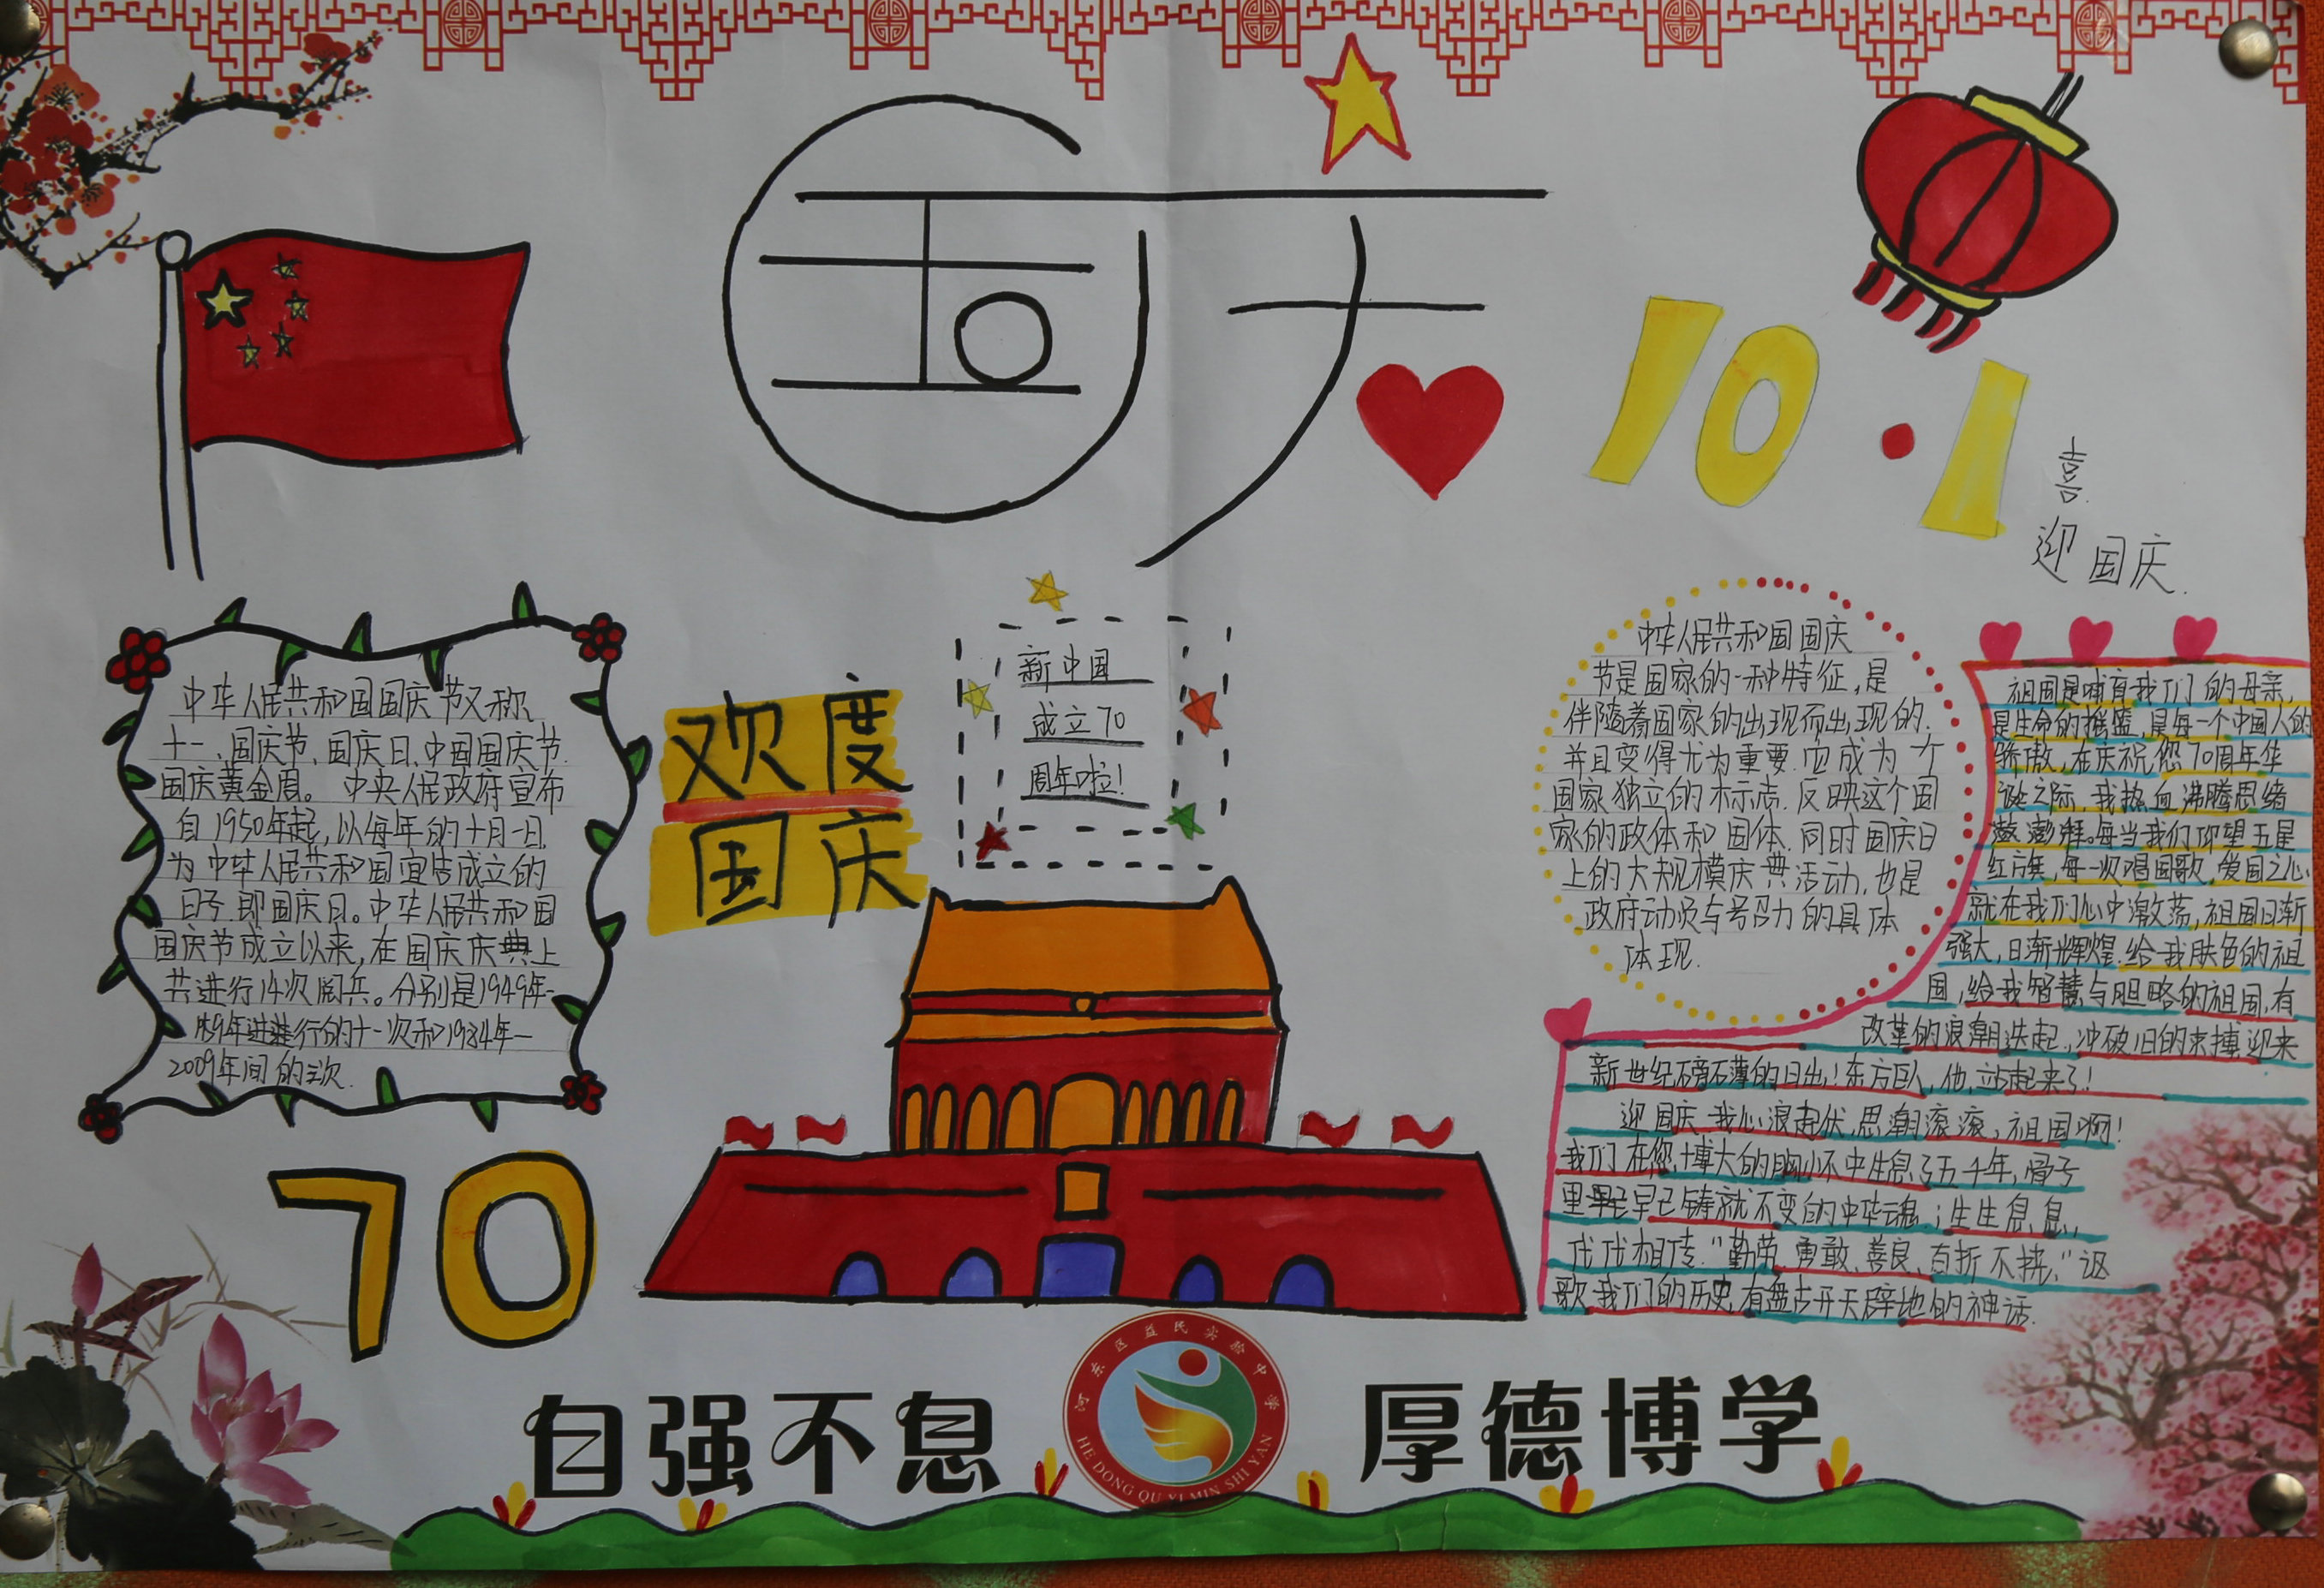 国庆
10·1
喜
迎国庆
新中国
成立70
周年啦!
欢度
国庆
中华人民共和国国庆节又称
十一、国庆节、国庆日、中国国庆节
国庆黄金周。 中央人民政府宣布
自1950年起,以每年的十月一日,
为中华人民共和国宣告成立的
日子.即国庆日。中华人民共和国
国庆节成立以来,在国庆庆典上
共进行14次阅兵。分别是1949年-
进行的十一次和1984年—
2009年间的三次.
中华人民共和国国庆
节是国家的一种特征,是
伴随着国家的出现而出现的.
并且变得尤为重要.它成为一个
国家独立的标志.反映这个国
家的政体和国体.同时国庆日
上的大规模庆典活动,也是
政府动员与号召力的具体
体现.
祖国是哺育我们的母亲,
是生命的摇篮,是每一个中国人的
骄傲,在庆祝您70周年华
诞之际,我热血沸腾思绪
澎湃。每当我们仰望五星
红旗,每一次唱国歌,爱国之心
就在我们心中激荡,祖国日渐
强大,日渐辉煌.给我肤色的祖
国,给我智慧与胆略的祖国,有
改革的浪潮迭起,冲破旧的束缚迎来
新世纪磅礴的日出!东方巨人,他,站起来了!
迎国庆.我心浪起伏,思潮滚滚,祖国啊!
我们在您博大的胸怀中生息了五千年,骨子
里早已铸就不变的中华魂;生生息息,
代代相传."勤劳.勇敢、善良、百折不挠,"讴
歌我们的历史,有盘古开天辟地的神话.
70
自强不息 厚德博学
河东区益民实验中学
HE DONG QU YI MIN SHI YAN